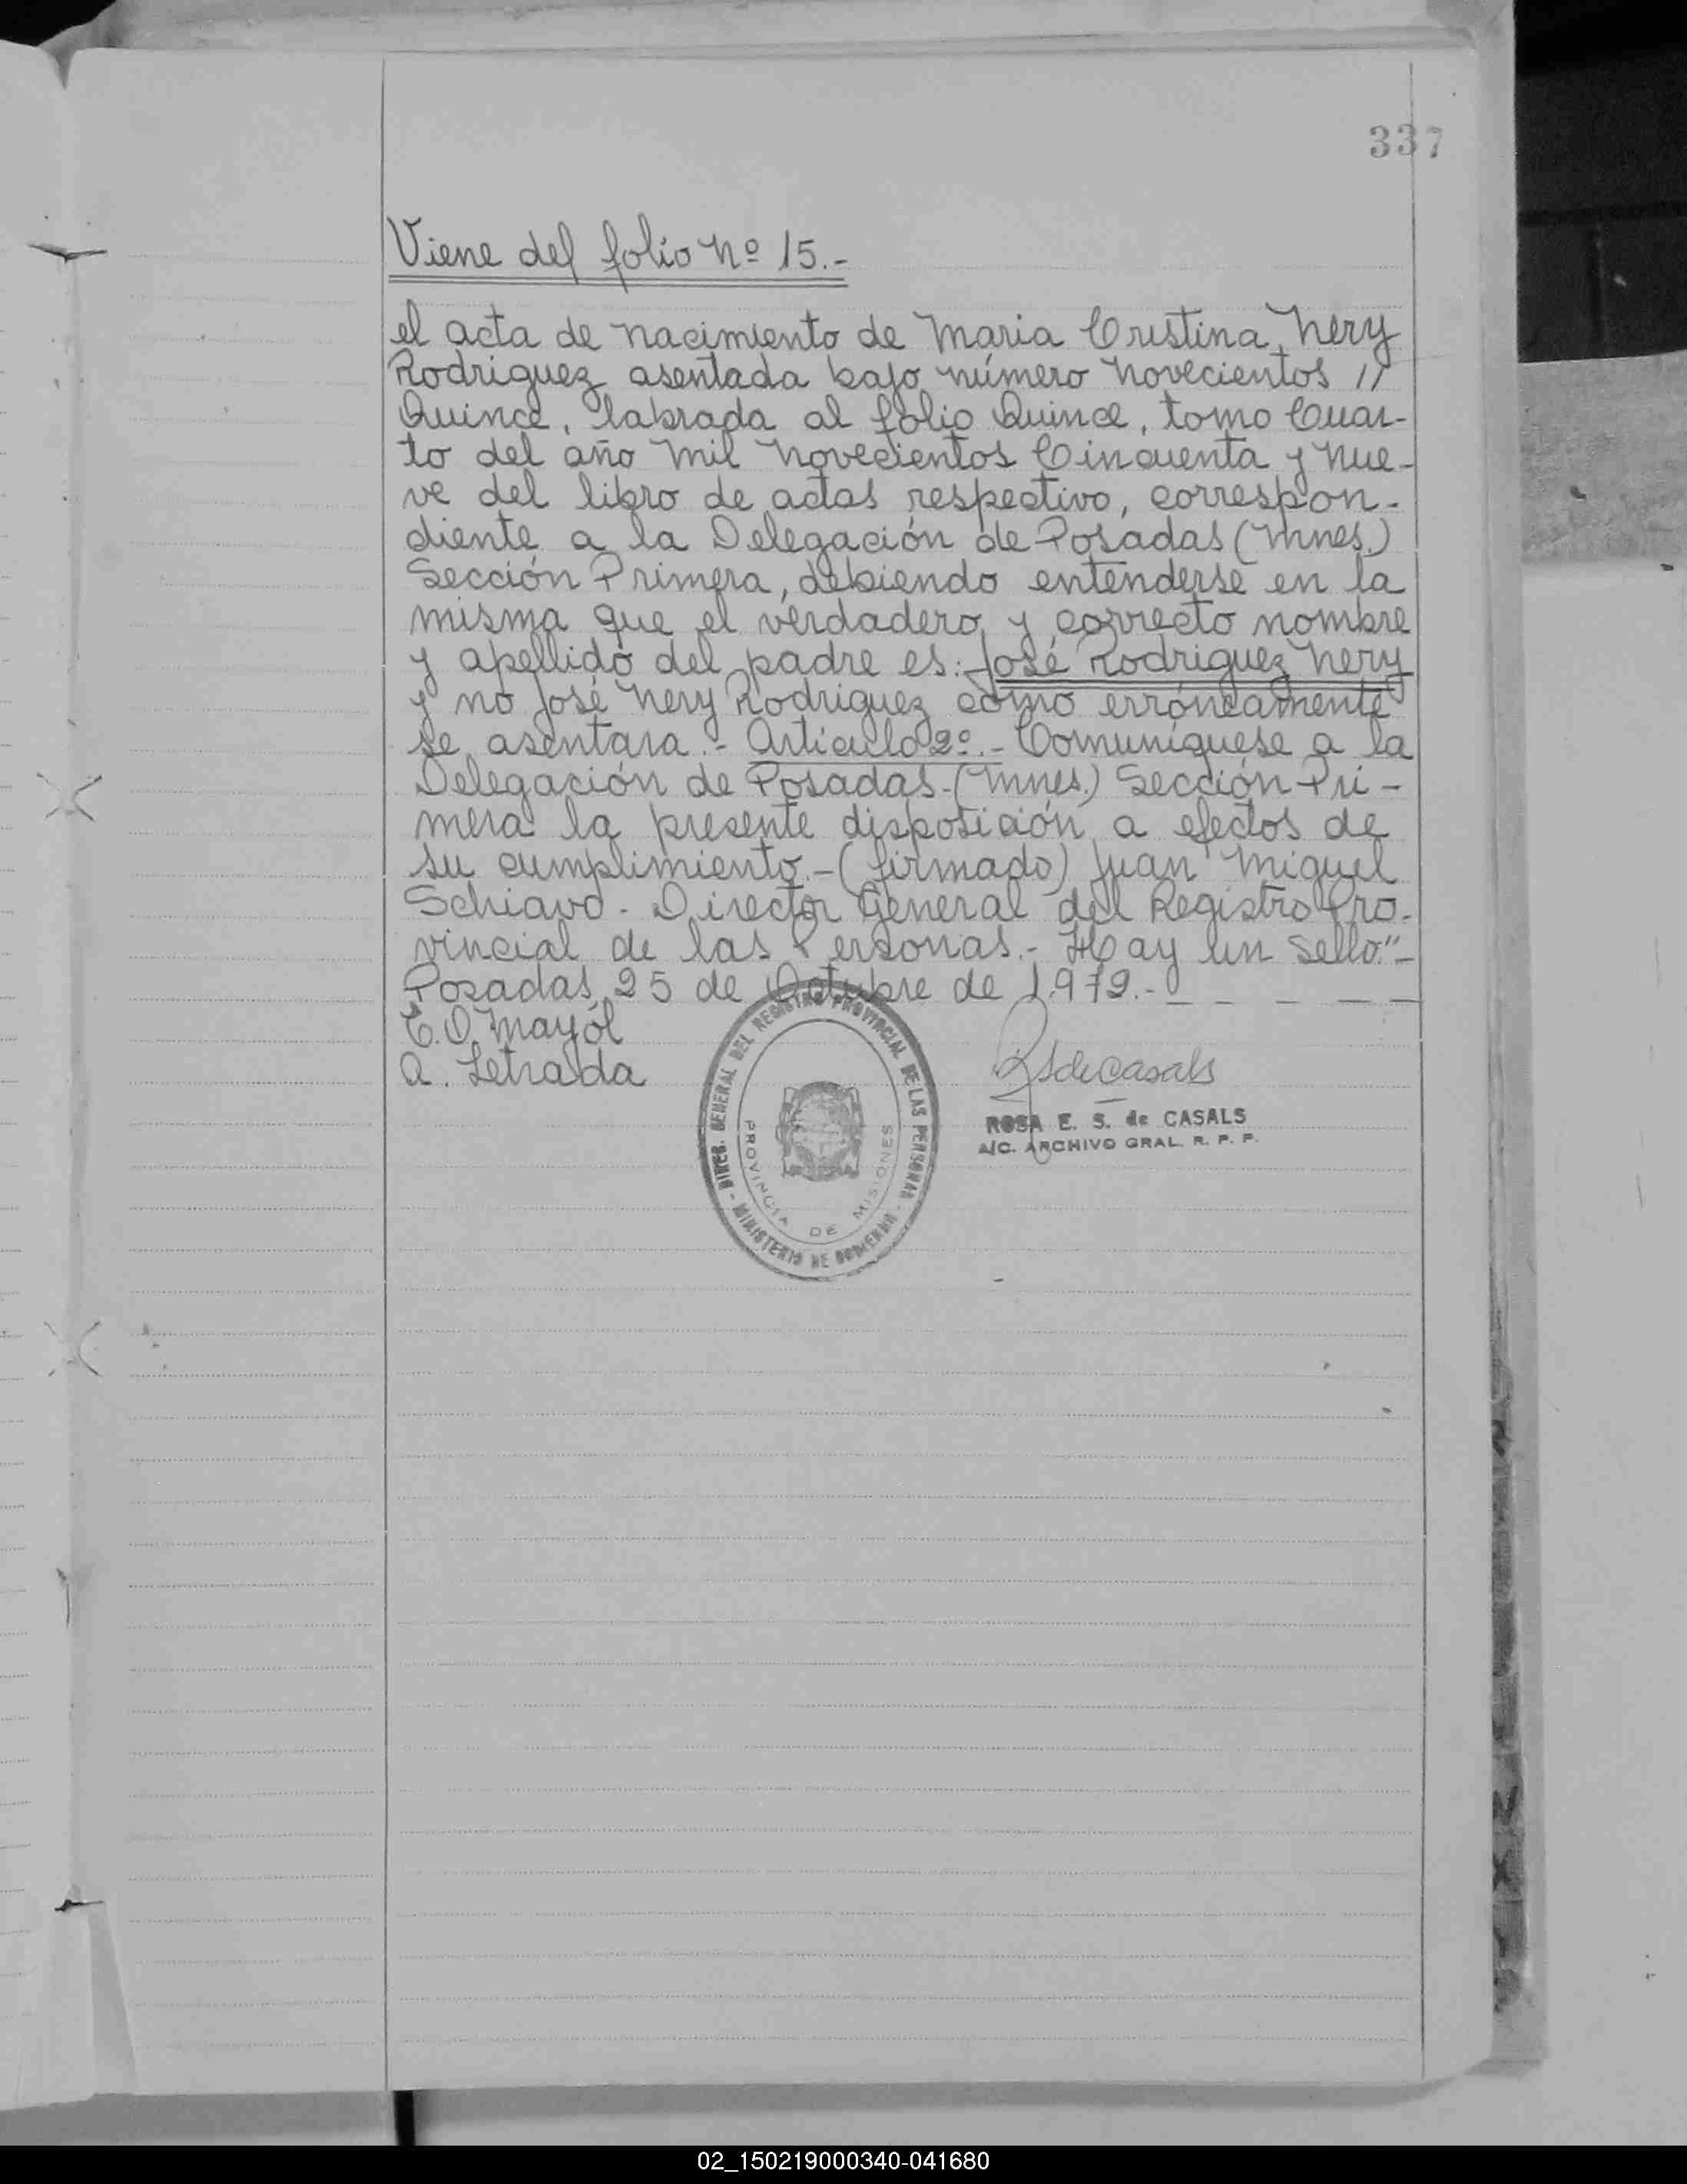 337
Viene del folio Nº 15.-
el acta de nacimiento de Maria Cristina Nery
Rodriguez asentada bajo número novecientos //
Quince, labrada al folio Quince, tomo Cuar-
to del año mil novecientos Cincuenta y nue-
ve del libro de actas respectivo, correspon-
diente a la Delegación de Posadas (Mnes.)
Sección Primera, debiendo entenderse en la
misma que el verdadero y correcto nombre
y apellido del padre es: José Rodriguez Nery
y no José Nery Rodriguez como erróneamente
se asentara.- Articulo 2º.- Comuníquese a la
Delegación de Posadas-(Mnes.) Sección Pri-
mera la presente disposición a efectos de
su cumplimiento.-(firmado) Juan Miguel
Schiavo - Director General del Registro Pro-
vincial de las Personas.- Hay un sello"-
Posadas, 25 de Octubre de 1.979.- _ _ _ _ _
E.O. Mayól
A. Letrada
DIREC. GENERAL DEL REGISTRO PROVINCIAL DE LAS PERSONAS - MINISTERIO DE GOBIERNO -
PROVINCIA DE MISIONES
RSdeCasals
ROSA E. S. de CASALS
A/C. ARCHIVO GRAL. R. P. P.
02_150219000340-041680